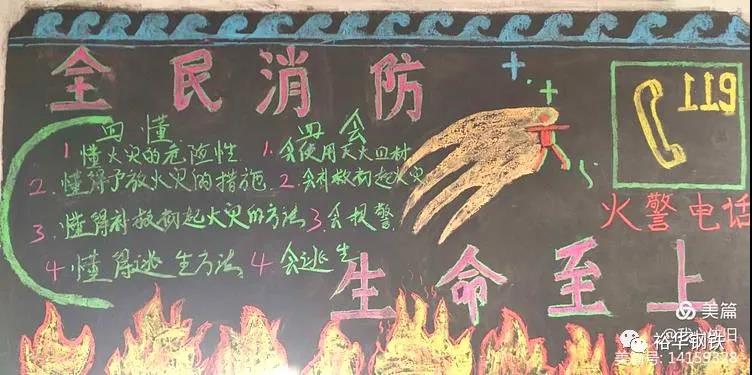 全民消防
119
四懂
四会
1 懂火灾的危险性
1.会使用灭火皿材
2.懂得予放火灾的措施
2.会扑救初起火灾
3.懂得扑救初起火灾的方法
3.会报警
4.懂得逃生方法
4 会逃生
火警电话
生命至上
美篇
裕华钢铁
14159328